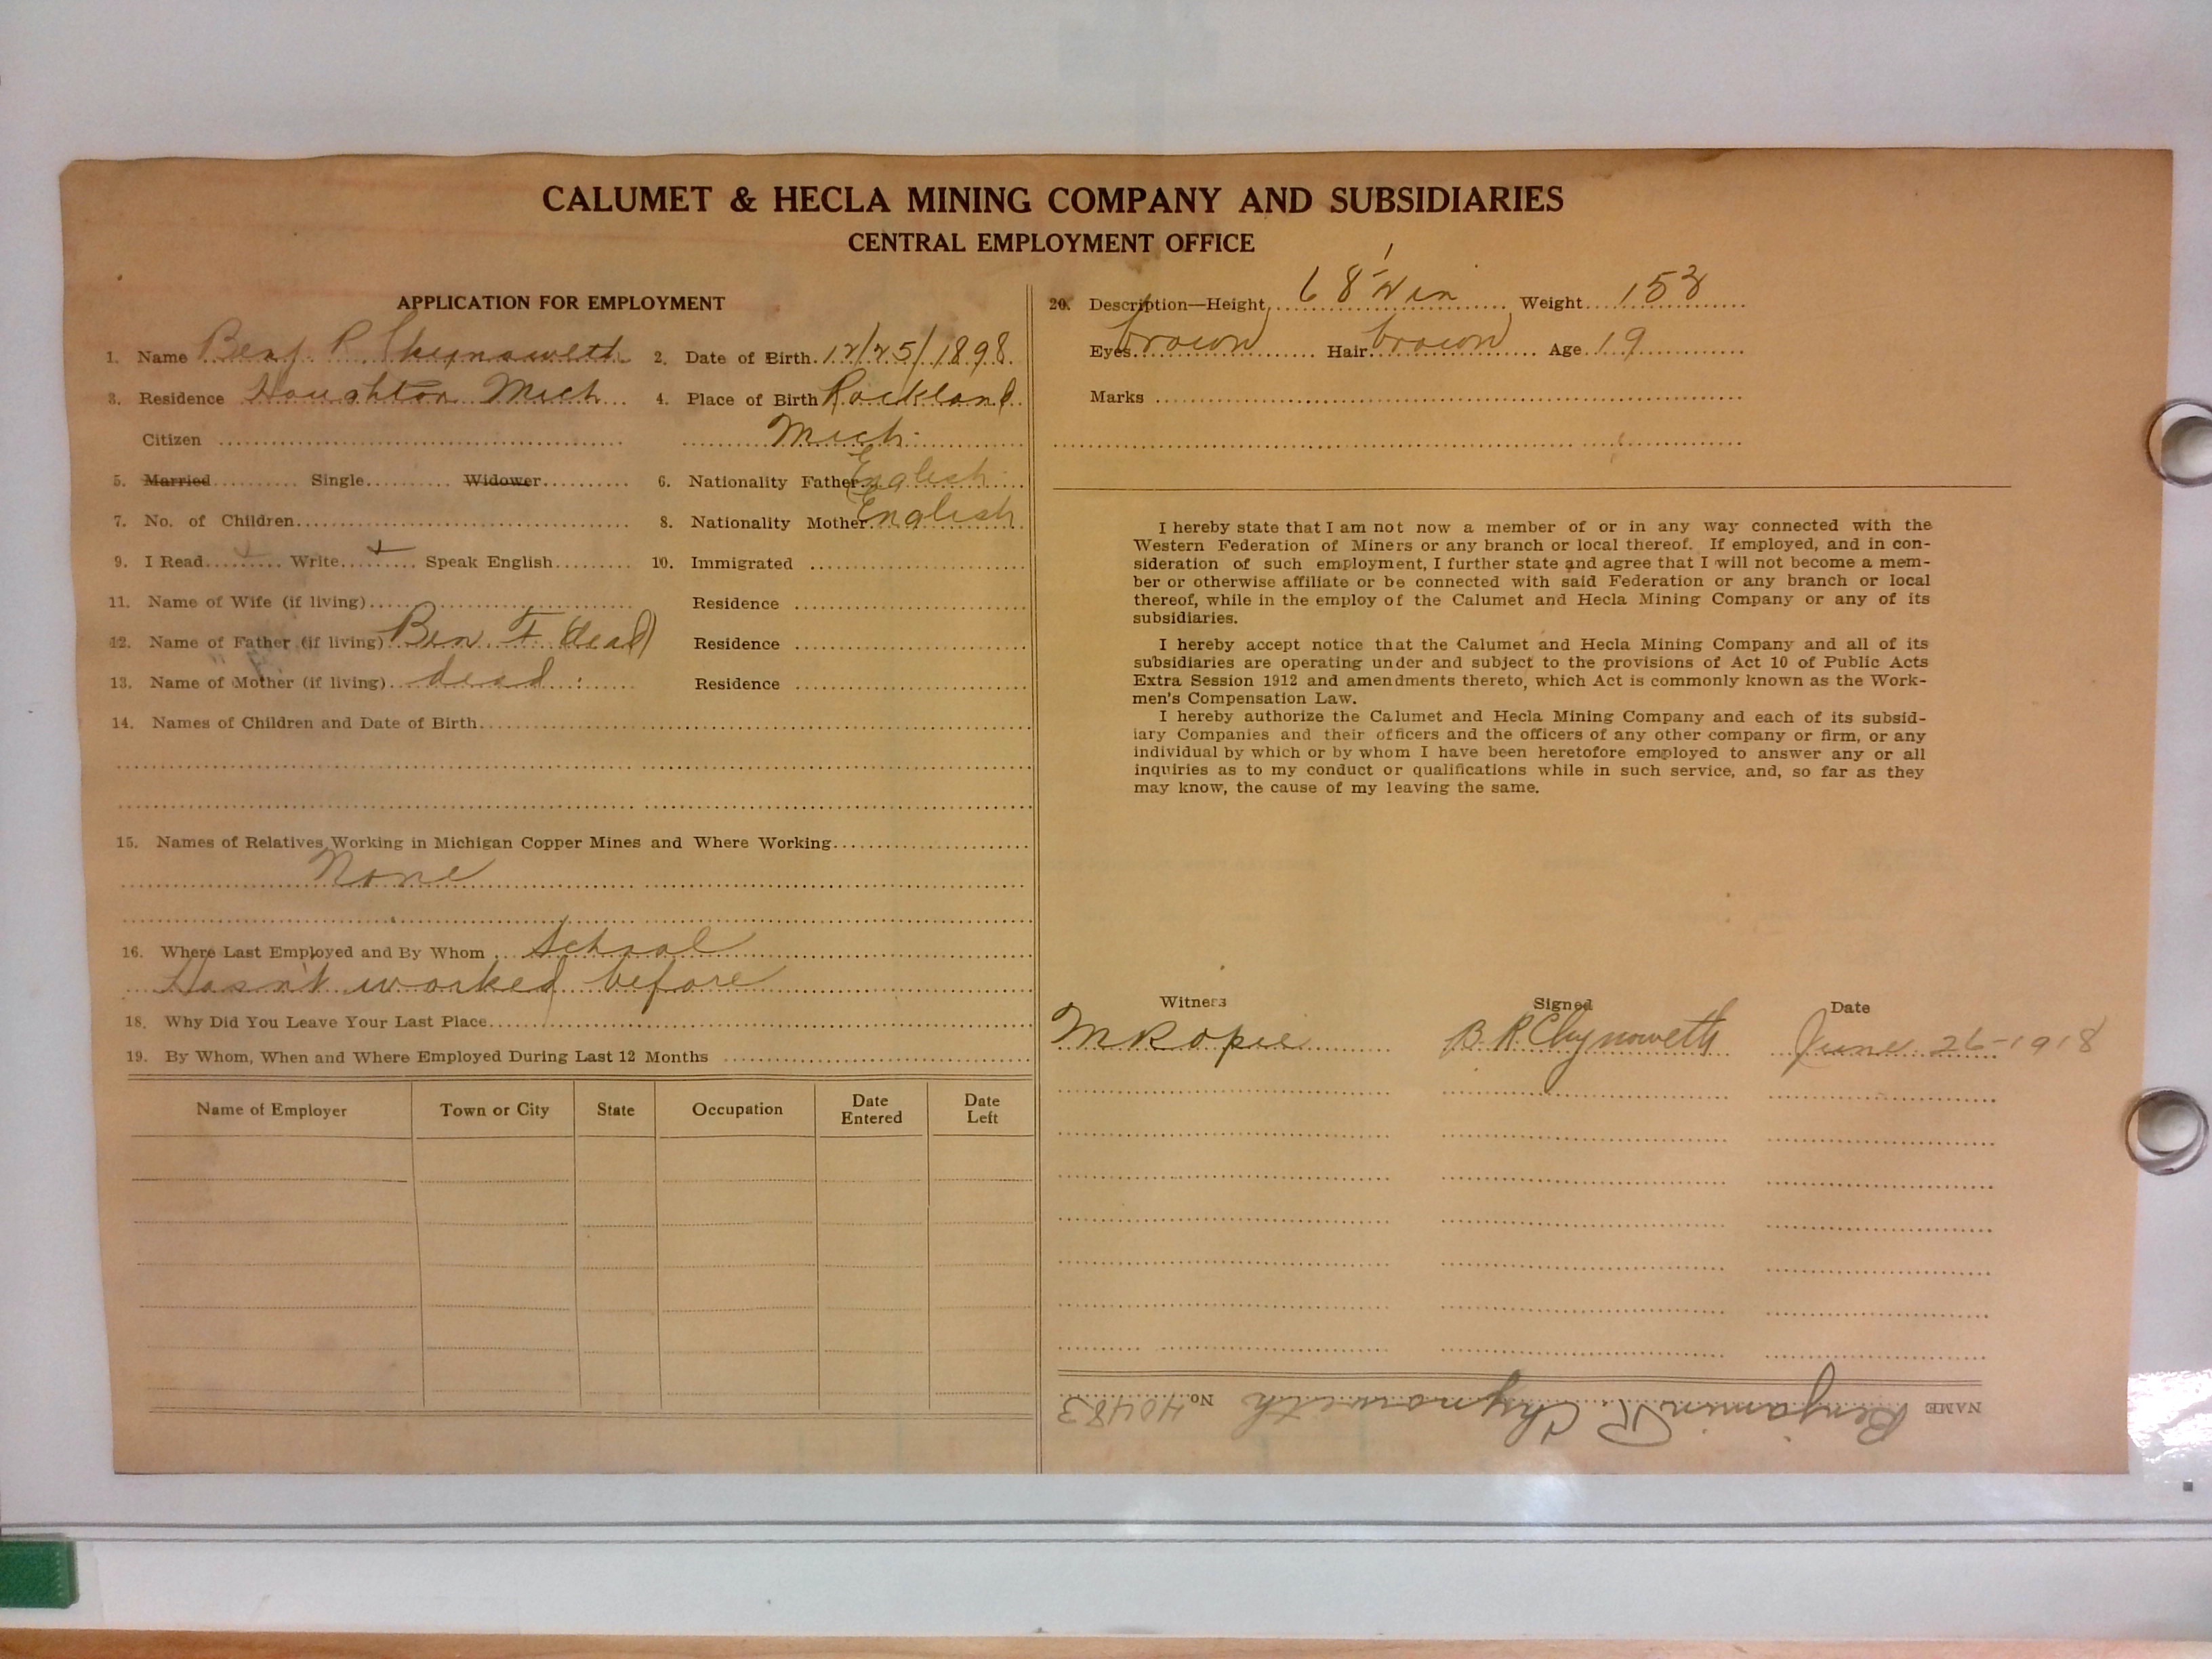 CALUMET & HECLA MINING COMPANY AND SUBSIDIARIES
CENTRAL EMPLOYMENT OFFICE
APPLICATION FOR EMPLOYMENT
1. Name Benj. R. Chynoweth 2. Date of Birth 12/25/1898
3. Residence Houghton Mich 4. Place of Birth Rockland
Citizen Mich.
5. Married Single Widower 6. Nationality Father English
7. No. of Children 8. Nationality Mother English
9. I Read Write Speak English 10. Immigrated
11. Name of Wife (if living) Residence
12. Name of Father (if living) Ben F (dead) Residence
13. Name of Mother (if living) dead Residence
14. Names of Children and Date of Birth
15. Names of Relatives Working in Michigan Copper Mines and Where Working
None
16. Where Last Employed and By Whom School
Hasn't worked before
18. Why Did You Leave Your Last Place
19. By Whom, When and Where Employed During Last 12 Months
Name of Employer Town or City State Occupation Date Entered Date Left
20. Description—Height 68 1/2 in Weight 153
Eyes brown Hair brown Age 19
Marks
I hereby state that I am not now a member of or in any way connected with the
Western Federation of Miners or any branch or local thereof. If employed, and in con-
sideration of such employment, I further state and agree that I will not become a mem-
ber or otherwise affiliate or be connected with said Federation or any branch or local
thereof, while in the employ of the Calumet and Hecla Mining Company or any of its
subsidiaries.
I hereby accept notice that the Calumet and Hecla Mining Company and all of its
subsidiaries are operating under and subject to the provisions of Act 10 of Public Acts
Extra Session 1912 and amendments thereto, which Act is commonly known as the Work-
men's Compensation Law.
I hereby authorize the Calumet and Hecla Mining Company and each of its subsid-
iary Companies and their officers and the officers of any other company or firm, or any
individual by which or by whom I have been heretofore employed to answer any or all
inquiries as to my conduct or qualifications while in such service, and, so far as they
may know, the cause of my leaving the same.
Witness Signed Date
B. R. Chynoweth June 26-1918
NAME Benjamin R. Chynoweth No. 40483